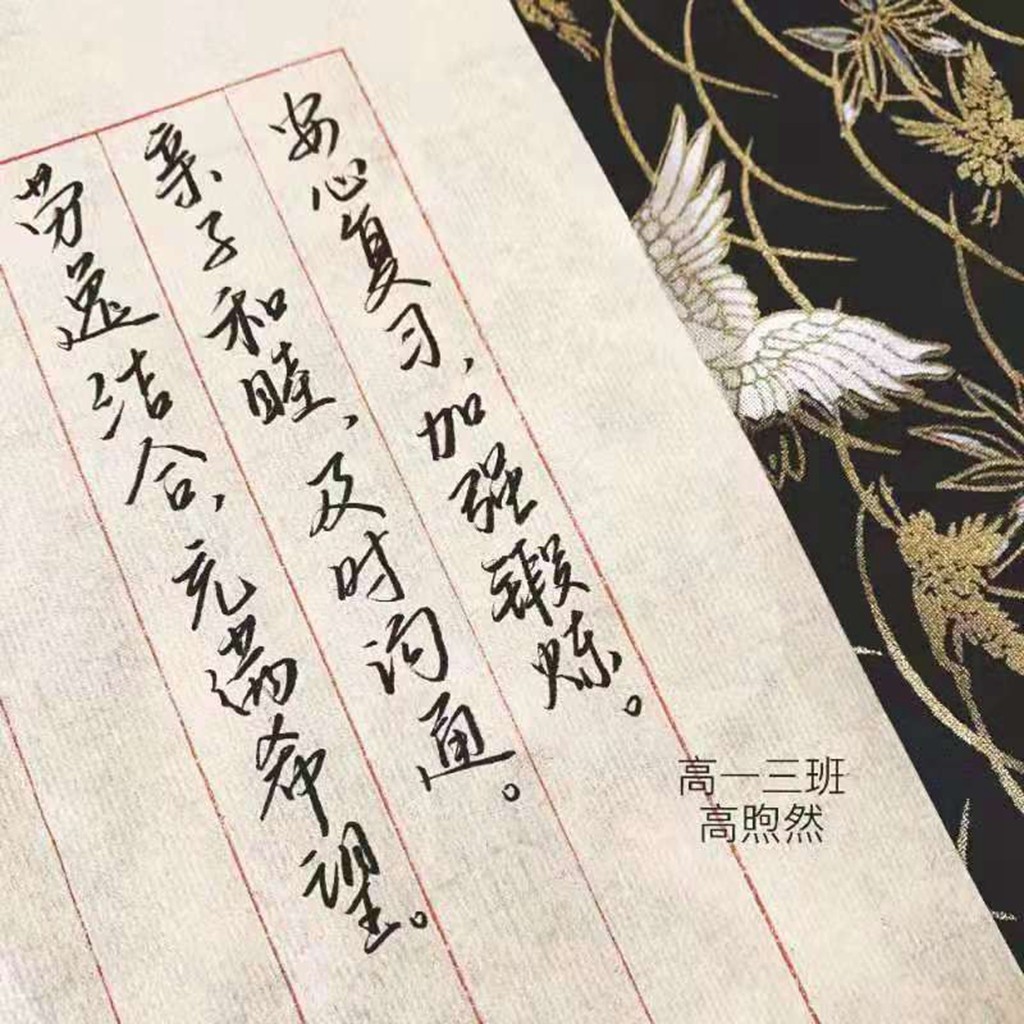 安心复习,加强锻炼。
亲子和睦,及时沟通。
劳逸结合,充满希望。
高一三班
高煦然